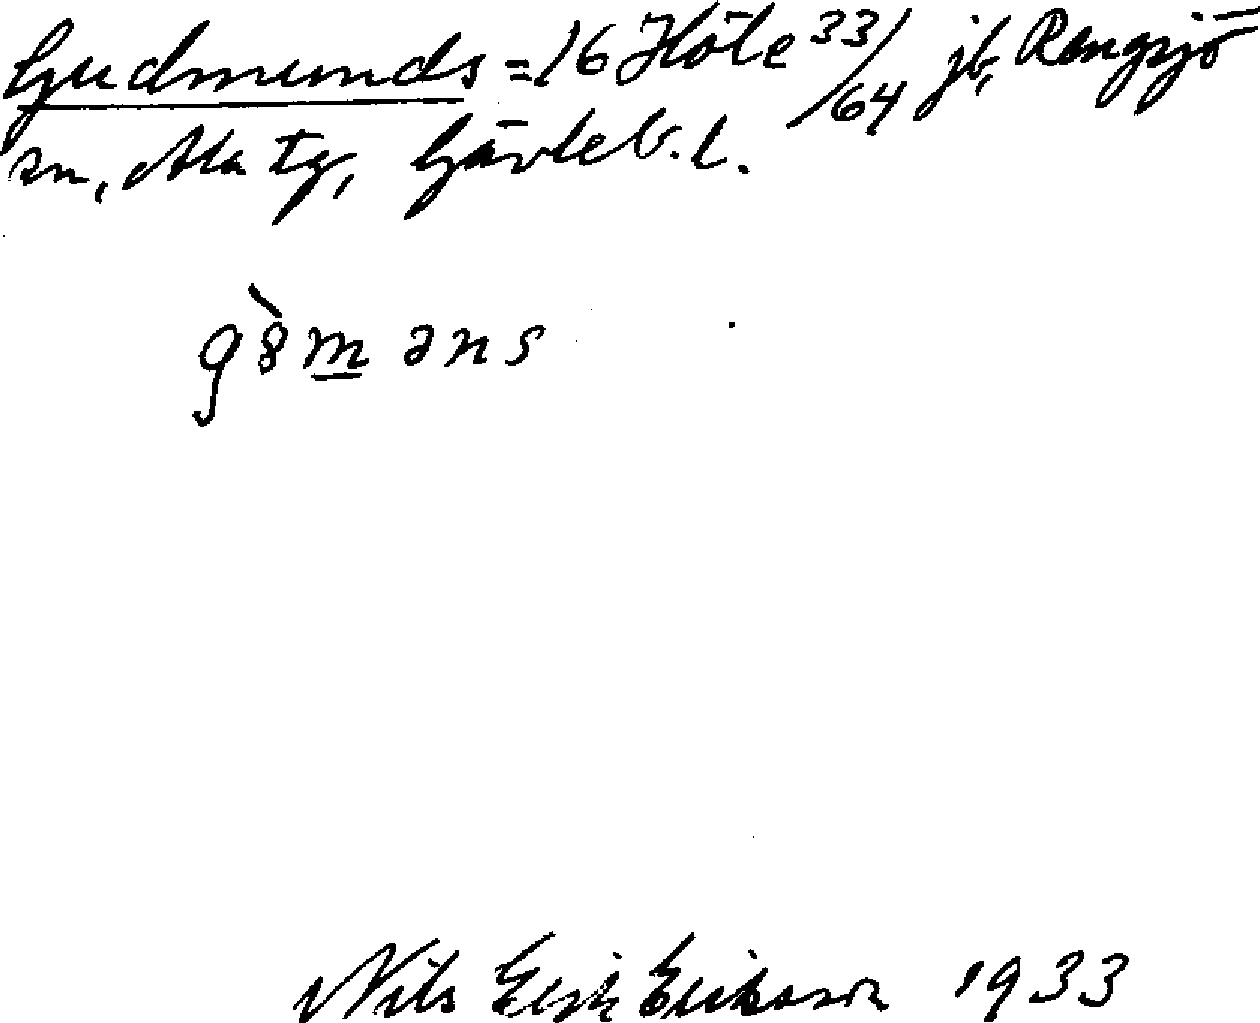 Gudmunds = 16 Höle 33/64 jb, Rengsjö
sn, Ala tg, Gävleb. l.
g8̀m̲əns
Nils Erik Erikson 1933